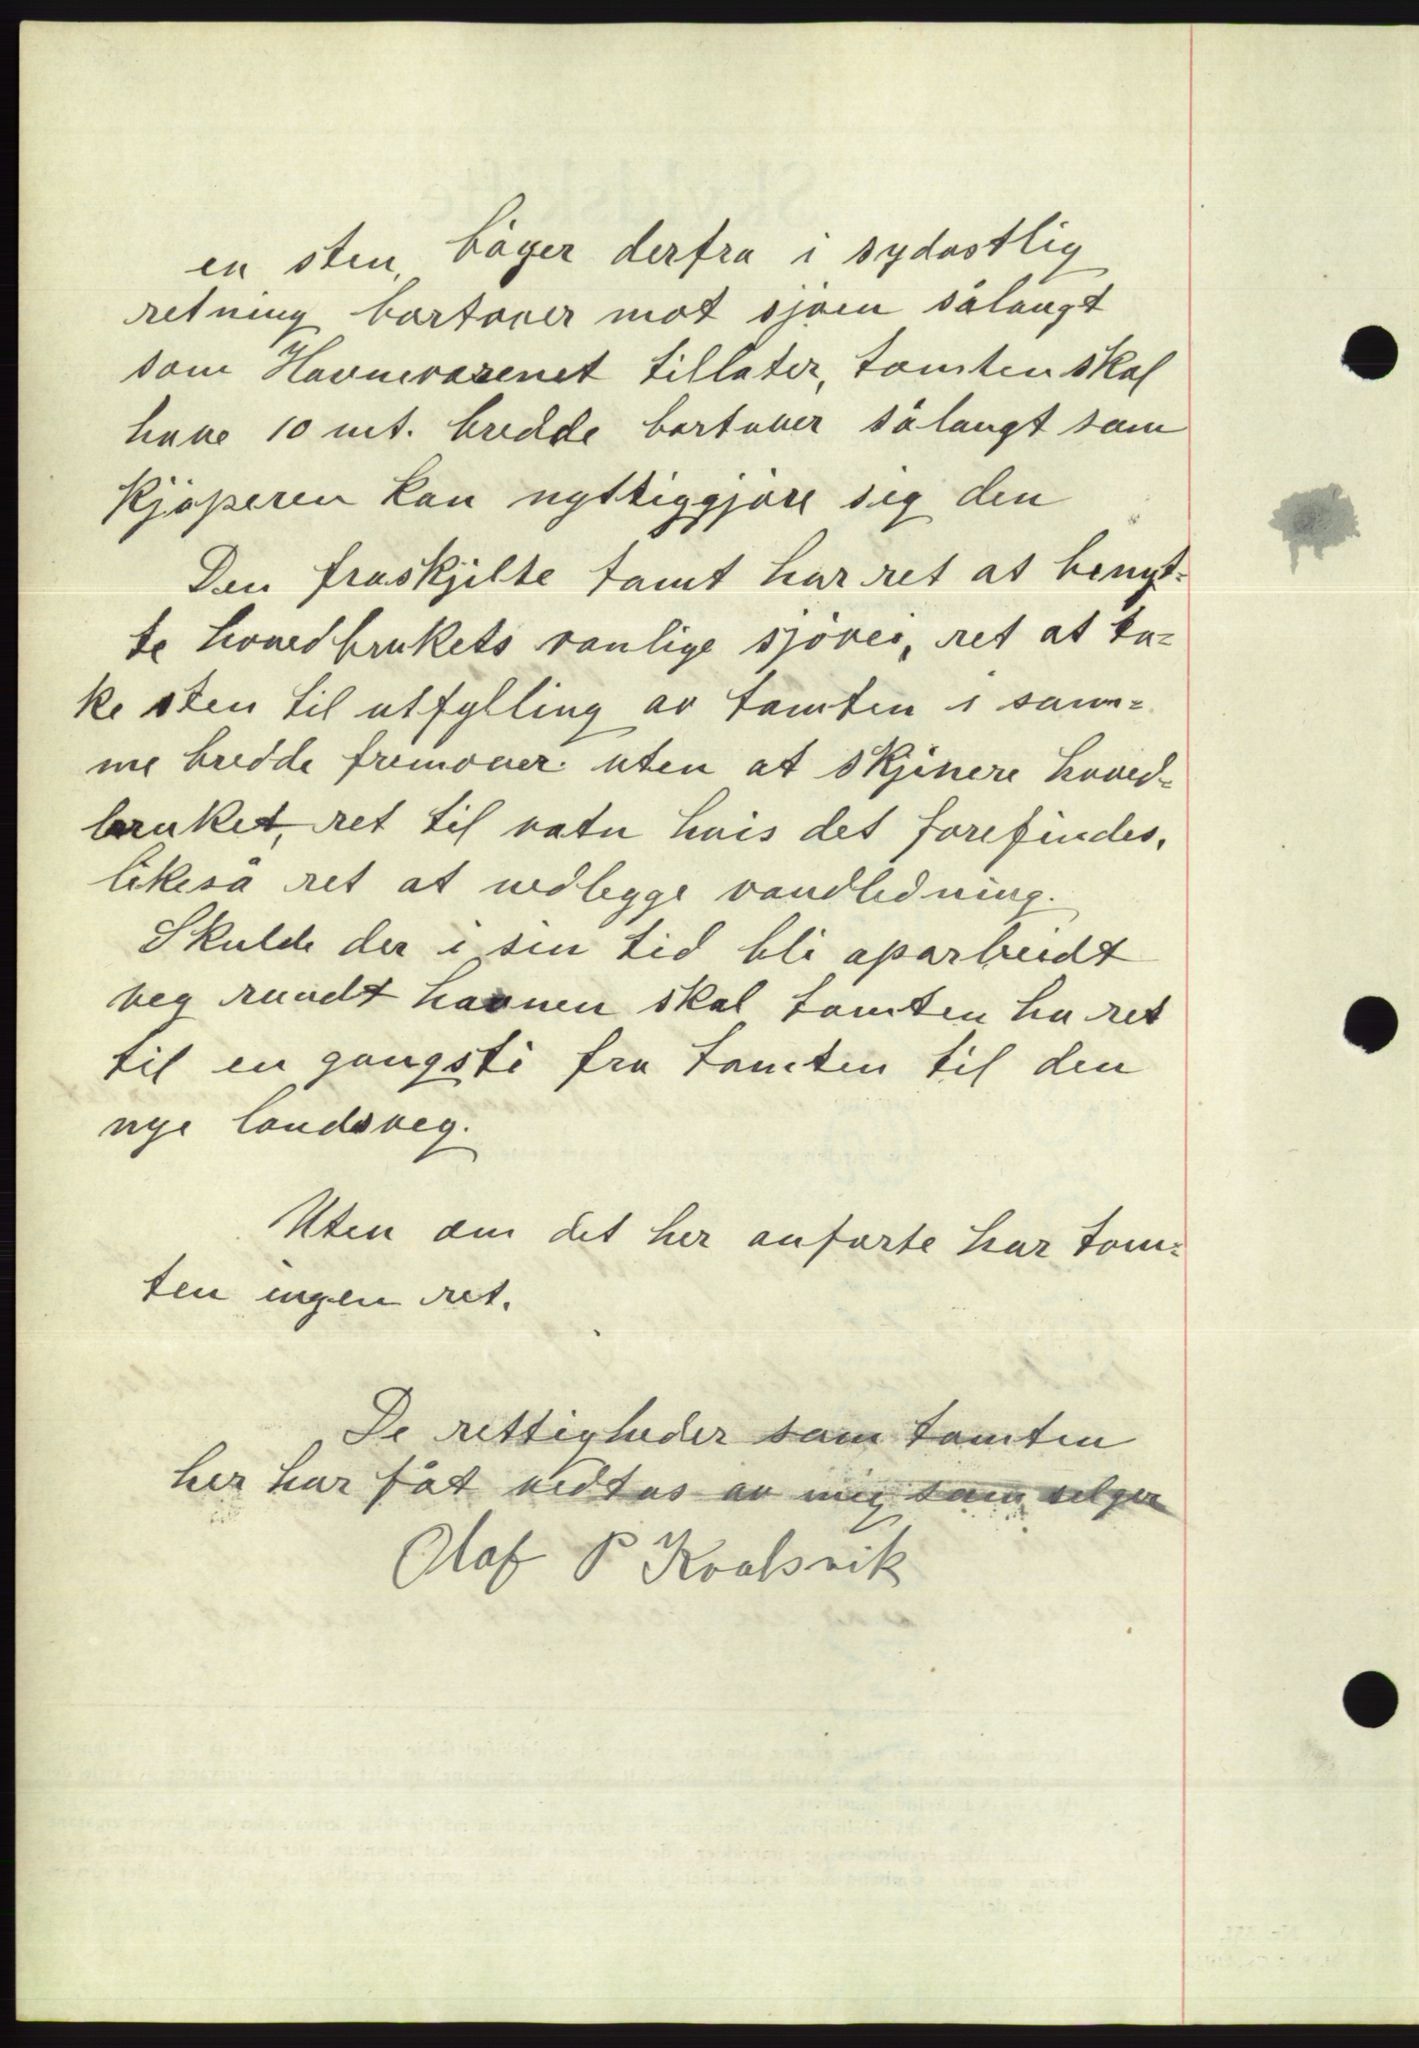 en sten, bøyer derfra i sydostlig
retning bortover mot sjøen sålangt
som Havnevæsenet tillater, tomten skal
have 10 mt. bredde bortover sålangt som
kjøperen kan nyttiggjøre sig den
Den fraskjilte tomt har ret at benyt-
te hovedbrukets vanlige sjøvei, ret at ta-
ke sten til utfylling av tomten i sam-
me bredde fremover uten at skjenere hoved-
bruket, ret til vatn hvis det forefindes,
likeså ret at nedlegge vandledning.
Skulde der i sin tid bli oparbeidt
veg rundt havnen skal tomten ha ret
til en gangsti fra tomten til den
nye landsveg.
Uten om det her anførte har tom-
ten ingen ret.
De rettigheder som tomten
her har fåt vedtas av mig som selger
Olaf P Kvalsvik